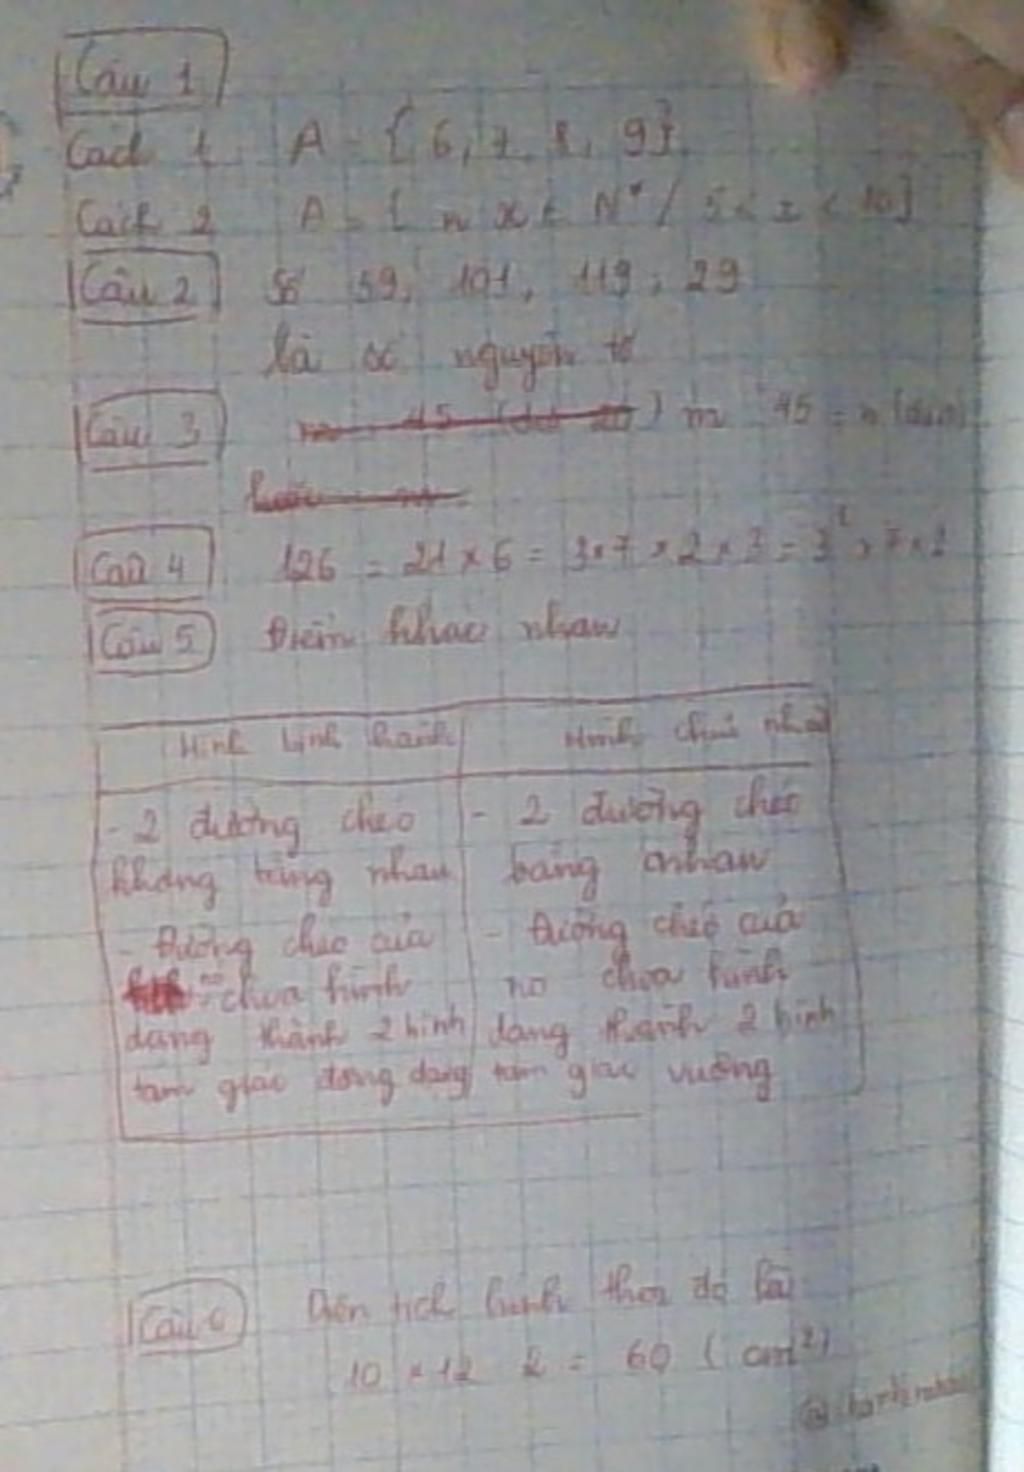 Câu 1
Cách 1 A = { 6, 7, 8, 9}
Cách 2 A = { x ∈ N* / 5 < x < 10}
Câu 2 Số 59, 101, 119, 29
là số nguyên tố
Câu 3 m 45 = n
Câu 4 126 = 21 x 6 = 3 x 7 x 2 x 3 = 3² x 7 x 2
Câu 5 Điểm khác nhau
Hình bình hành Hình chữ nhật
- 2 đường chéo - 2 đường chéo
không bằng nhau bằng nhau
- Đường chéo của - Đường chéo của
chia hình nó chia hình
dạng thành 2 hình dạng thành 2 hình
tam giác đồng dạng tam giác vuông
Câu 6 Diện tích hình thoi đó là
10 x 12 2 = 60 ( cm²)